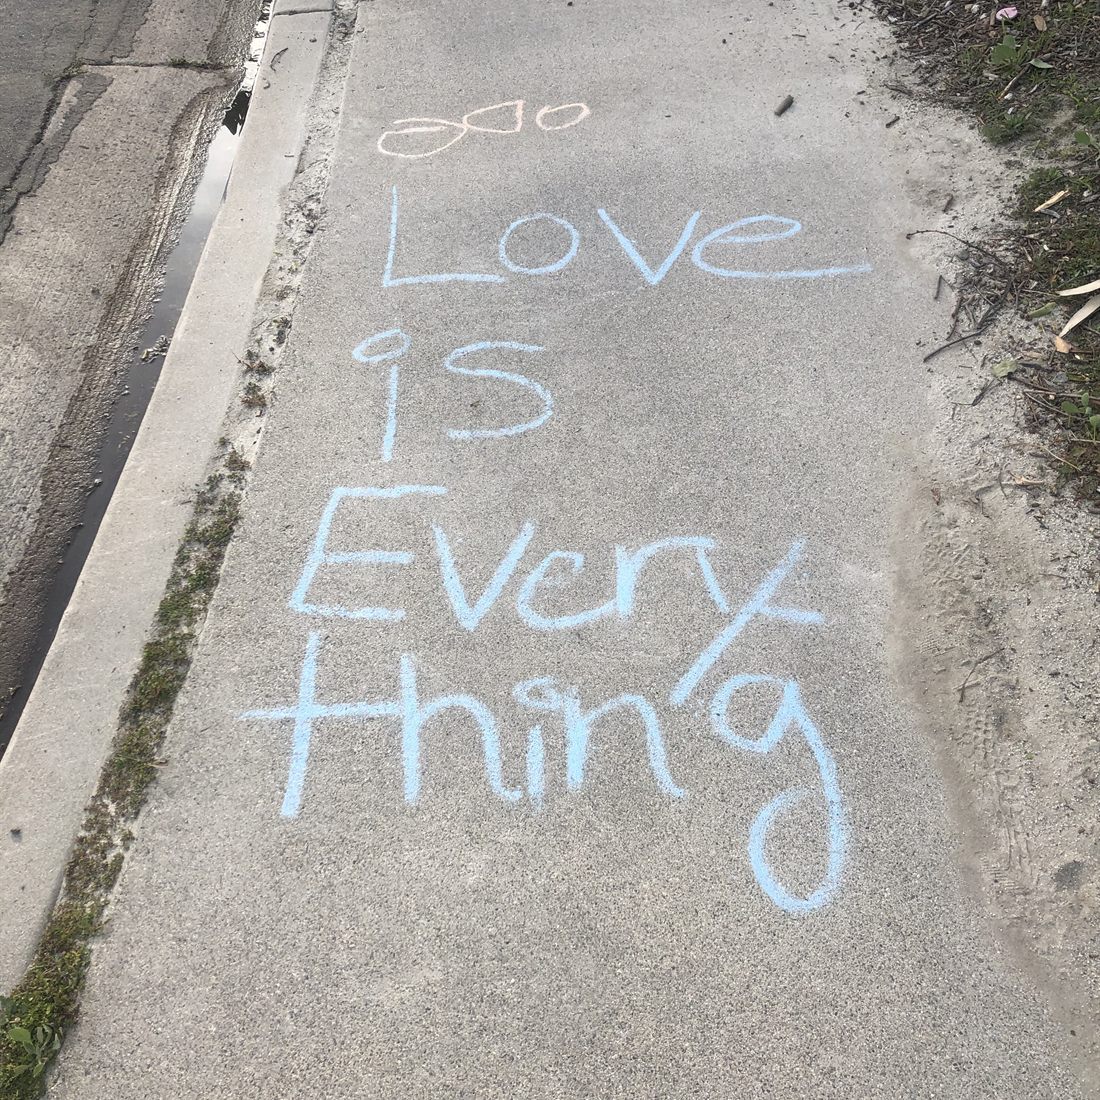 Love
is
Every
thing